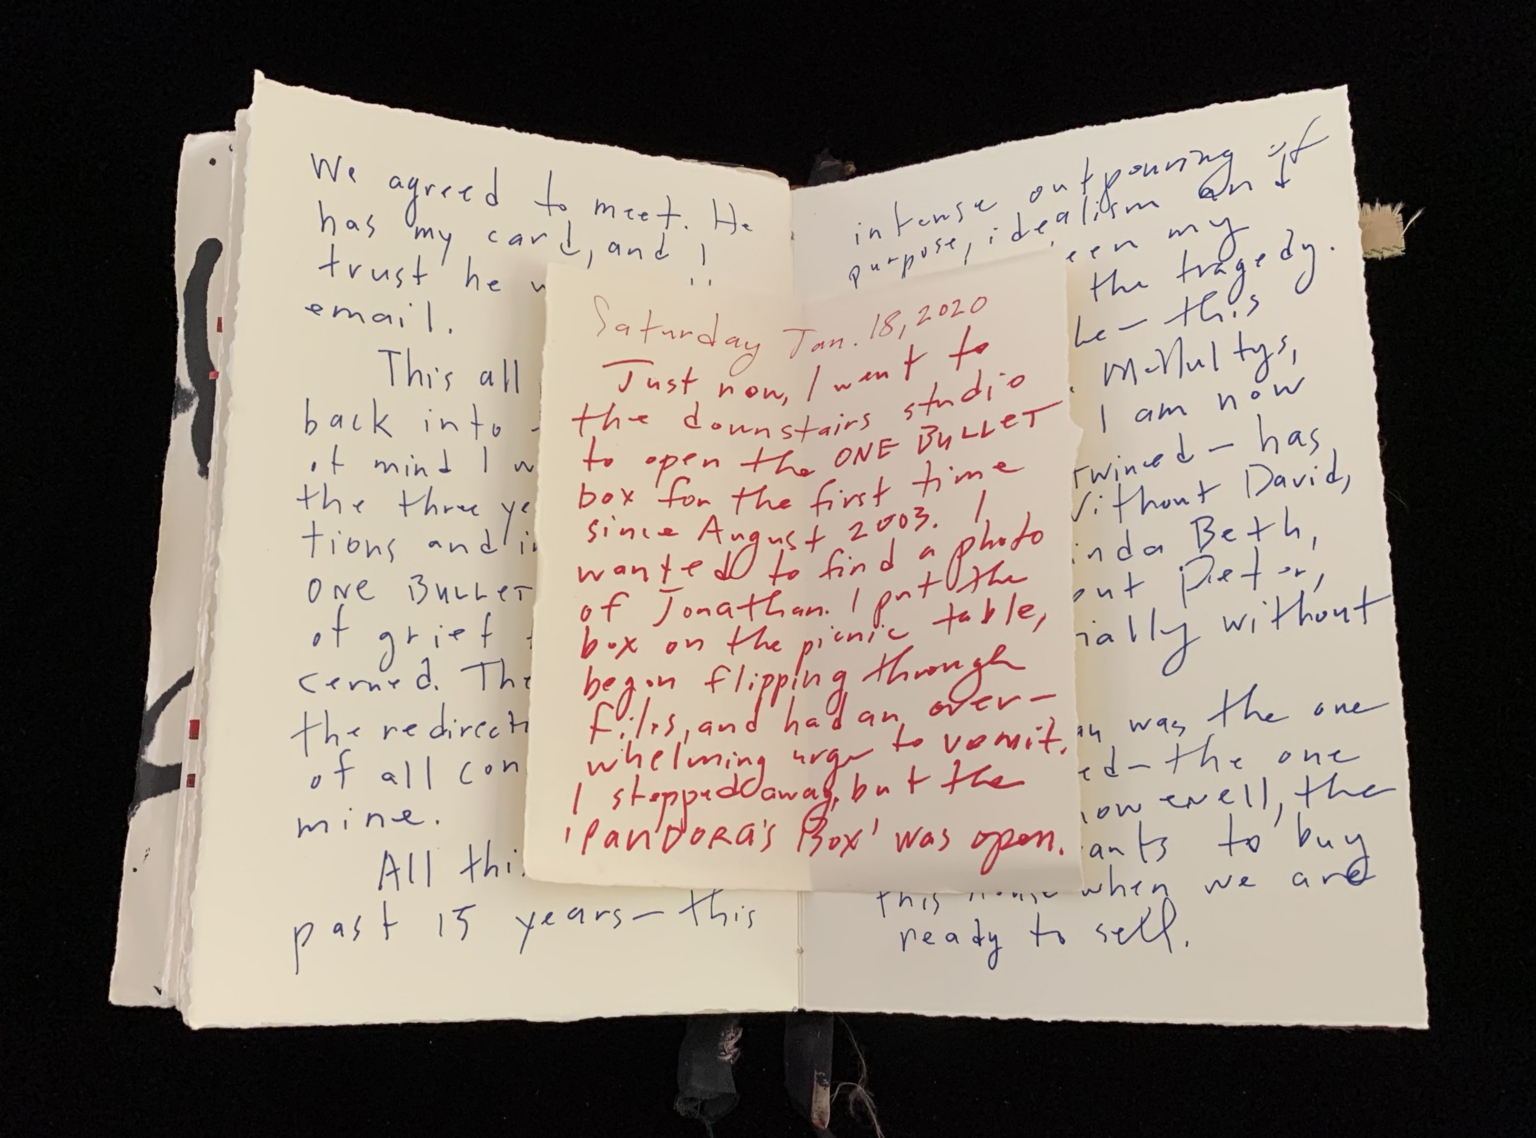 We agreed to meet. He
has my card, and I
trust he
email.
This all
back into
of mind I
the three
tions and
ONE BULLET
of grief
cerned. The
the redirect
of all con
mine.
All this
past 15 years — this
Saturday Jan. 18, 2020
Just now, I went to
the downstairs studio
to open the ONE BULLET
box for the first time
since August 2003. I
wanted to find a photo
of Jonathan. I put the
box on the picnic table,
began flipping through
files, and had an over-
whelming urge to vomit.
I stepped away, but the
'PANDORA'S BOX' was open.
intense outpouring of
purpose, idealism and
een my
the tragedy.
le — this
McNultys,
I am now
twined — has
Without David,
inda Beth,
out Pieter,
ially without
was the one
ed — the one
Howewell, the
ants to buy
this house when we are
ready to sell.